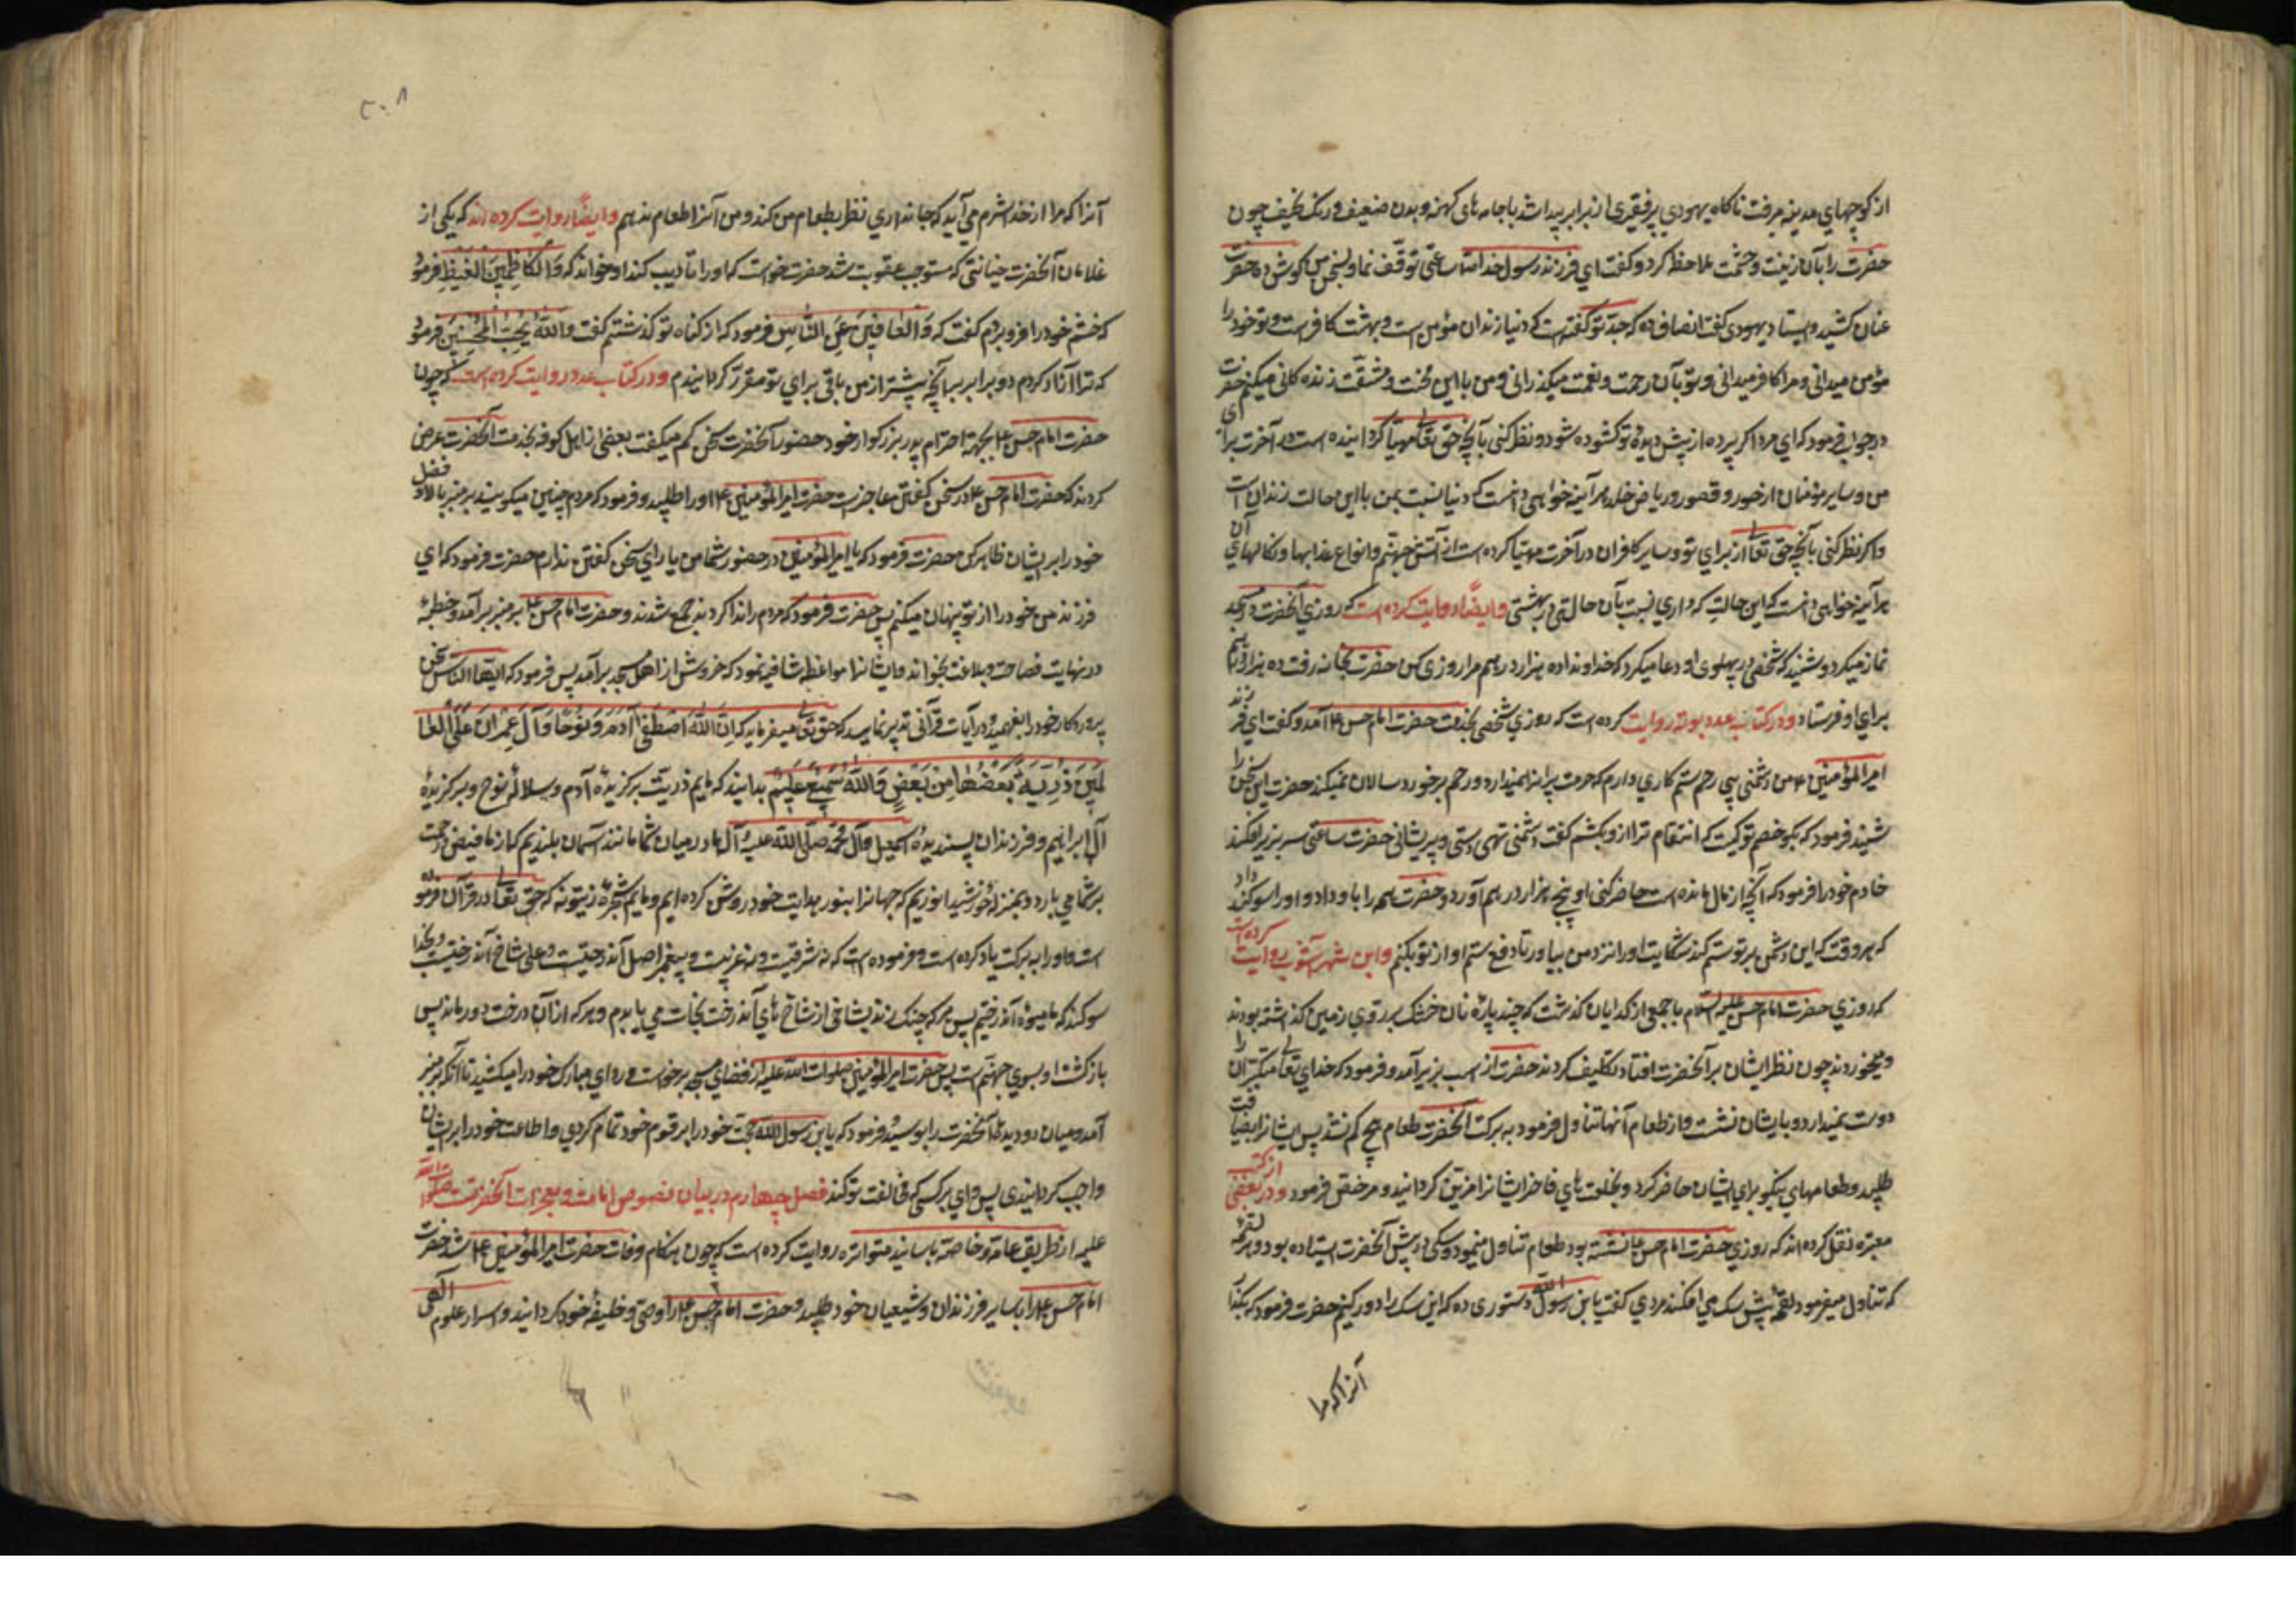 از کوچهای مدینه میرفت ناکاه یهودی پیر فقیری از برابر پیدا شد با جامه های کهنه و بدن ضعیف و رنک نحیف چون
حضرت را بآن زینت و حشمت ملاحظه کرد و کفت ای فرزند رسول خدا ساعتی توقف نما و سخن من کوش ده حضرت
عنان کشید و ایستاد یهودی کفت انصاف ده که جد تو کفته است که دنیا زندان مؤمن است و بهشت کافر است و تو خود را
مؤمن میدانی و مرا کافر میدانی و تو بآن رحمت و نعمت میکذرانی و من با این محنت و مشقت زنده کانی میکنم حضرت
در جواب فرمود که ای مرد اکر پرده از پیش دیدهٔ تو کشوده شود و نظر کنی بآنچه حق تعالی مهیا کردانیده است در آخرت برای
من و سایر مؤمنان از حور و قصور و ریاض خلد هر آینه خواهی دانست که دنیا نسبت بمن با این حالت زندان است
و اکر نظر کنی بآنچه حق تعالی از برای تو و سایر کافران در آخرت مهیا کرده است از آتش جهنم و انواع عذابها و نکالهای آن
هر آینه خواهی دانست که این حالت که داری نسبت بآن حالت در بهشتی و ایضاً روایت کرده است که روزی آنحضرت در مسجد
نماز میکرد و شنید که شخصی در پهلوی او دعا میکرد که خداوندا ده هزار درهم مرا روزی کن حضرت بخانه رفت ده هزار درهم
برای او فرستاد و در کتاب عدد بوته روایت کرده است که روزی شخصی بخدمت حضرت امام حسن ع آمد و کفت ای فرزند
امیر المؤمنین ع من دشمنی بی رحم ستم کاری دارم که حرمت پیران نمیدارد و رحم بر خورد سالان نمیکند حضرت این سخن را
شنید فرمود که بکو خصم تو کیست که انتقام ترا ازو بکشم کفت دشمنی تهی دستی و پریشانی حضرت ساعتی سر بزیر افکند
خادم خود را فرمود که آنچه از مال مانده است حاضر کنی او پنج هزار درهم آورد و حضرت همه را باو داد و او را سوکند داد
که هر وقت که این دشمن بر تو ستم کند شکایت او را نزد من بیاور تا دفع ستم او از تو بکنم و ابن شهر آشوب روایت کرده است
که روزی حضرت امام حسن علیه السلام با جمعی از کدایان کذشت که چند پاره نان خشک بر روی زمین کذاشته بودند
و میخوردند چون نظر ایشان بر آنحضرت افتاد تکلیف کردند حضرت از اسب بزیر آمد و فرمود که خدای تعالی متکبران را
دوست نمیدارد و با ایشان نشست و از طعام آنها تناول فرمود به برکت آنحضرت طعام هیچ کم نشد پس ایشانرا بضیافت
طلبید و طعامهای نیکو برای ایشان حاضر کرد و بخلعت های فاخر ایشانرا مزین کردانید و مرخص فرمود و در بعضی از کتب
معتبره نقل کرده اند که روزی حضرت امام حسن ع نشسته بود طعام تناول مینمود و سکی در پیش آنحضرت ایستاده بود و هر لقمه
که تناول میفرمود لقمه پیش سک می افکند مردی کفت یا بن رسول الله دستوری ده که این سک را دور کنیم حضرت فرمود که بکذار
آنرا که مرا
۲۰۸
آنرا که مرا از خدا شرم می آید که جانداری نظر بطعام من کند و من آنرا طعام ندهم و ایضاً روایت کرده اند که یکی از
غلامان آنحضرت خیانتی که مستوجب عقوبت شد حضرت خواست که او را تادیب کند او خواند که والکاظمین الغیظ فرمود
که خشم خود را فرو بردم کفت که والعافین عن الناس فرمود که از کناه تو کذشتم کفت والله یحب المحسنین فرمود
که ترا آزاد کردم و دو برابر آنچه پیشتر از من باقی برای تو مقرر کردانیدم و در کتاب عدد روایت کرده است که چون
حضرت امام حسن ع بجهة احترام پدر بزرکوار خود حضور آنحضرت سخن کم میکفت بعضی از اهل کوفه بخدمت آنحضرت عرض
کردند که حضرت امام حسن ع در سخن کفتن عاجز است حضرت امیر المؤمنین ع او را طلبید و فرمود که مردم چنین میکویند بر منبر بالا رو فضل
خود را بر ایشان ظاهر کن حضرت فرمود که یا امیر المؤمنین در حضور شما من یارای سخن کفتن ندارم حضرت فرمود که ای
فرزند من خود را از تو پنهان میکنم پس حضرت فرمود که مردم را ندا کردند جمع شدند و حضرت امام حسن ع بر منبر بر آمد و خطبهٔ
در نهایت فصاحت و بلاغت بخواند و ایشانرا مواعظ شافیه نمود که خروش از اهل مسجد بر آمد پس فرمود که ایها الناس سخن
پروردکار خود را بفهمید و در آیات قرآنی تدبر نمایید که حق تعالی میفرماید که ان الله اصطفی آدم و نوحا و آل عمران علی العا
لمین ذریة بعضها من بعض والله سمیع علیم بدانید که مایم ذریت برکزیدهٔ آدم و سلالهٔ نوح و برکزیدهٔ
آل ابراهیم و فرزندان پسندیدهٔ اسمعیل و آل محمد صلی الله علیه و آله ما در میان شما مانند آسمان بلندیم که از ما فیض رحمت
بر شما می بارد و بمنزلهٔ خورشید انوریم که جهانرا بنور هدایت خود روشن کرده ایم و مایم شجرهٔ زیتونه که حق تعالی در قرآن فرموده
است و او را به برکت یاد کرده است و فرموده است که نه شرقیست و نه غربیست و پیغمبر اصل آن درختست و علی شاخ آن درختست و بخدا
سوکند که ما میوهٔ آن درختیم پس هر که چنک زند بشاخی از شاخ های آن درخت نجات می یابد و هر که از آن درخت دور ماند پس
بازکشت او بسوی جهنم است پس حضرت امیر المؤمنین صلوات الله علیه از فضای مسجد برخواست و ردای مبارک خود را میکشید تا آنکه بر منبر
آمد و میان دو دیدهٔ آنحضرت را بوسید و فرمود که یا بن رسول الله حجت خود را بر قوم خود تمام کردی و اطاعت خود را بر ایشان
واجب کردانیدی پس وای بر کسی که مخالفت تو کند فصل چهارم در بیان نصوص امامت و معجزات آنحضرتست صلوات الله
علیه از طریق عامه و خاصه باسانید متواتره روایت کرده است که چون هنکام وفات حضرت امیر المؤمنین ع شد حضرت
امام حسن ع را با سایر فرزندان و شیعیان خود طلبید و حضرت امام حسن ع را وصی و خلیفهٔ خود کردانید و اسرار علوم الهی